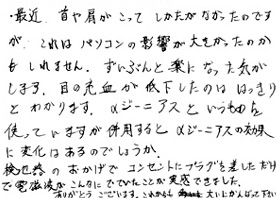 ・最近 首や肩がこって しかたがなかったのです
が、これは パソコンの影響が大きかったのか
もしれません。ずいぶんと楽になった気が
します。目の充血が低下したのははっきり
とわかります。αジーニアスというものも
使っていますが併用すると αジーニアスの効果
に変化はあるのでしょうか。
検出器のおかげで コンセントにプラグを差しただけ
で電磁波がこんなにでていたことが実感できました。
ありがとうございます。これからも 大いにがんばって下さい